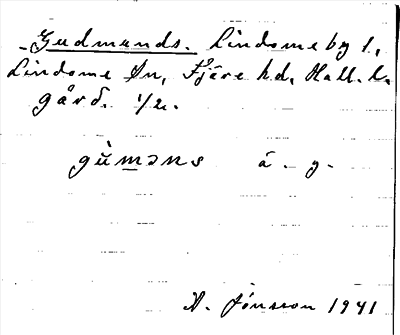 Gudmunds. Lindome by 1,
Lindome sn, Fjäre hd, Hall. l.
gård. 1/2.
gùməns ä. g.
A. Jönsson 1941